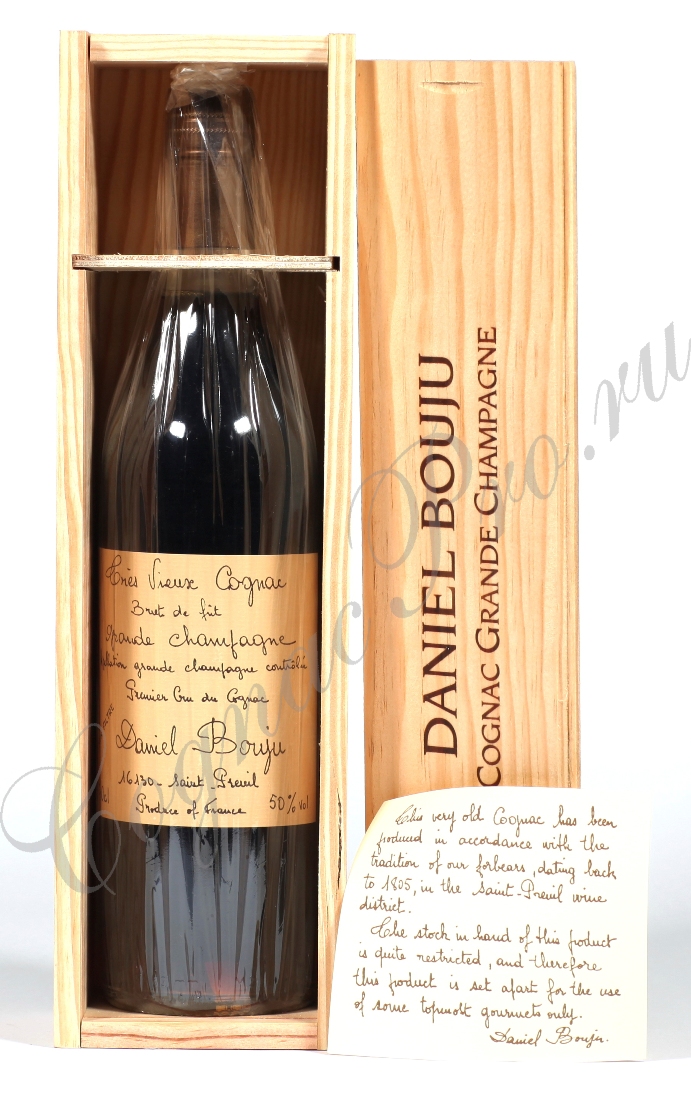 Très Vieux Cognac
Brut de fût
Grande Champagne
llation grande champagne contrôlée
Premier Cru du Cognac
Daniel Bouju
16130 - Saint-Preuil
cl Produce of France 50% vol
DANIEL BOUJU
COGNAC GRANDE CHAMPAGNE
This very old Cognac has been
produced in accordance with the
tradition of our forbears, dating back
to 1805, in the Saint-Preuil wine
district.
The stock in hand of this product
is quite restricted, and therefore
this product is set apart for the use
of some topmost gourmets only.
Daniel Bouju.
CognacPro.ru